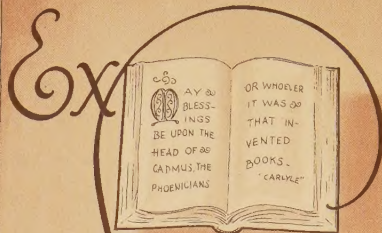 Ex
MAY
BLESS-
INGS
BE UPON THE
HEAD OF
CADMUS, THE
PHOENICIANS
OR WHOELER
IT WAS
THAT IN-
VENTED
BOOKS-
"CARLYLE"